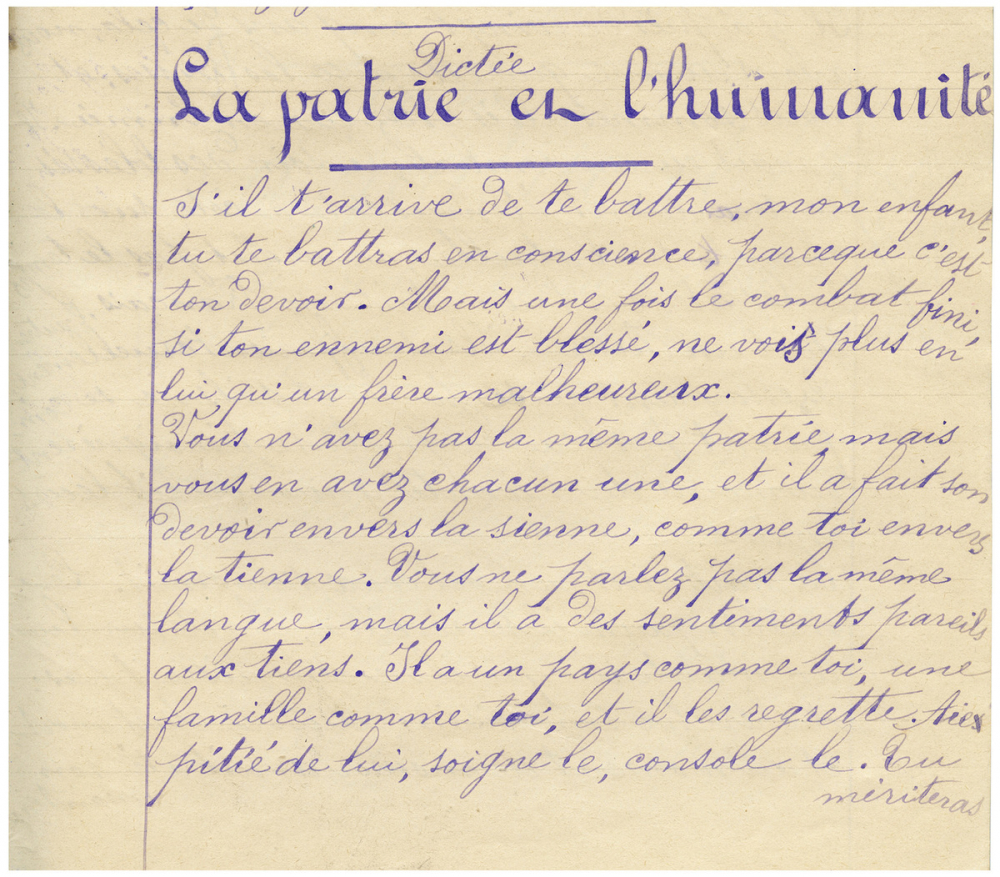 Dictée
La patrie et l'humanité
S'il t'arrive de te battre, mon enfant,
tu te battras en conscience, parceque c'est
ton devoir. Mais une fois le combat fini,
si ton ennemi est blessé, ne vois plus en
lui qu'un frère malheureux.
Vous n'avez pas la même patrie, mais
vous en avez chacun une, et il a fait son
devoir envers la sienne, comme toi envers
la tienne. Vous ne parlez pas la même
langue, mais il a des sentiments pareils
aux tiens. Il a un pays comme toi, une
famille comme toi, et il les regrette. Aies
pitié de lui, soigne le, console le. Tu
mériteras